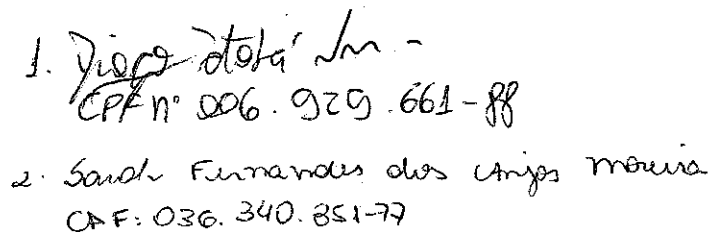 1. Diogo Jr -
CPF nº 006.929.661-88
2. Sarah Fernandes dos Anjos Moreira
CPF: 036.340.851-77